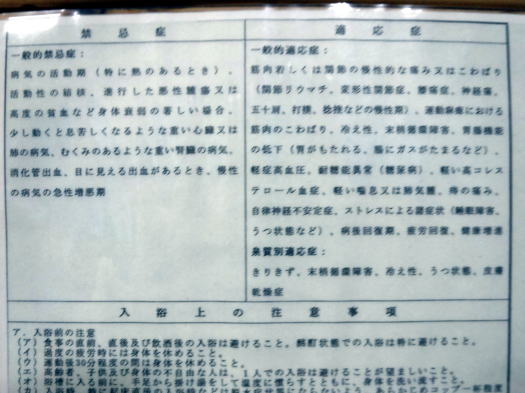 禁忌症
一般的禁忌症：
病気の活動期（特に熱のあるとき）、
活動性の結核、進行した悪性腫瘍又は
高度の貧血など身体衰弱の著しい場合、
少し動くと息苦しくなるような重い心臓又は
肺の病気、むくみのあるような重い腎臓の病気、
消化管出血、目に見える出血があるとき、慢性
の病気の急性増悪期
適応症
一般的適応症：
筋肉若しくは関節の慢性的な痛み又はこわばり
（関節リウマチ、変形性関節症、腰痛症、神経痛、
五十肩、打撲、捻挫などの慢性期）、運動麻痺における
筋肉のこわばり、冷え性、末梢循環障害、胃腸機能
の低下（胃がもたれる、腸にガスがたまるなど）、
軽症高血圧、耐糖能異常（糖尿病）、軽い高コレス
テロール血症、軽い喘息又は肺気腫、痔の痛み、
自律神経不安定症、ストレスによる諸症状（睡眠障害、
うつ状態など）、病後回復期、疲労回復、健康増進
泉質別適応症：
きりきず、末梢循環障害、冷え性、うつ状態、皮膚
乾燥症
入浴上の注意事項
ア．入浴前の注意
（ア）食事の直前、直後及び飲酒後の入浴は避けること。酩酊状態での入浴は特に避けること。
（イ）過度の疲労時には身体を休めること。
（ウ）運動後30分程度の間は身体を休めること。
（エ）高齢者、子供及び身体の不自由な人は、１人での入浴は避けることが望ましいこと。
（オ）浴槽に入る前に、手足から掛け湯をして温度に慣らすとともに、身体を洗い流すこと。